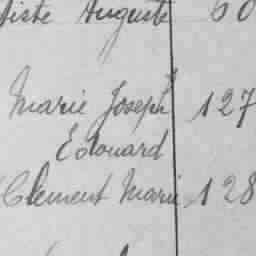 tiste Auguste 60
Marie Joseph 127
Edouard
Clement Marie 128